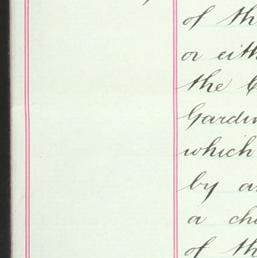 of th
or eith
the C
Gardin
which
by a
a ch
of th